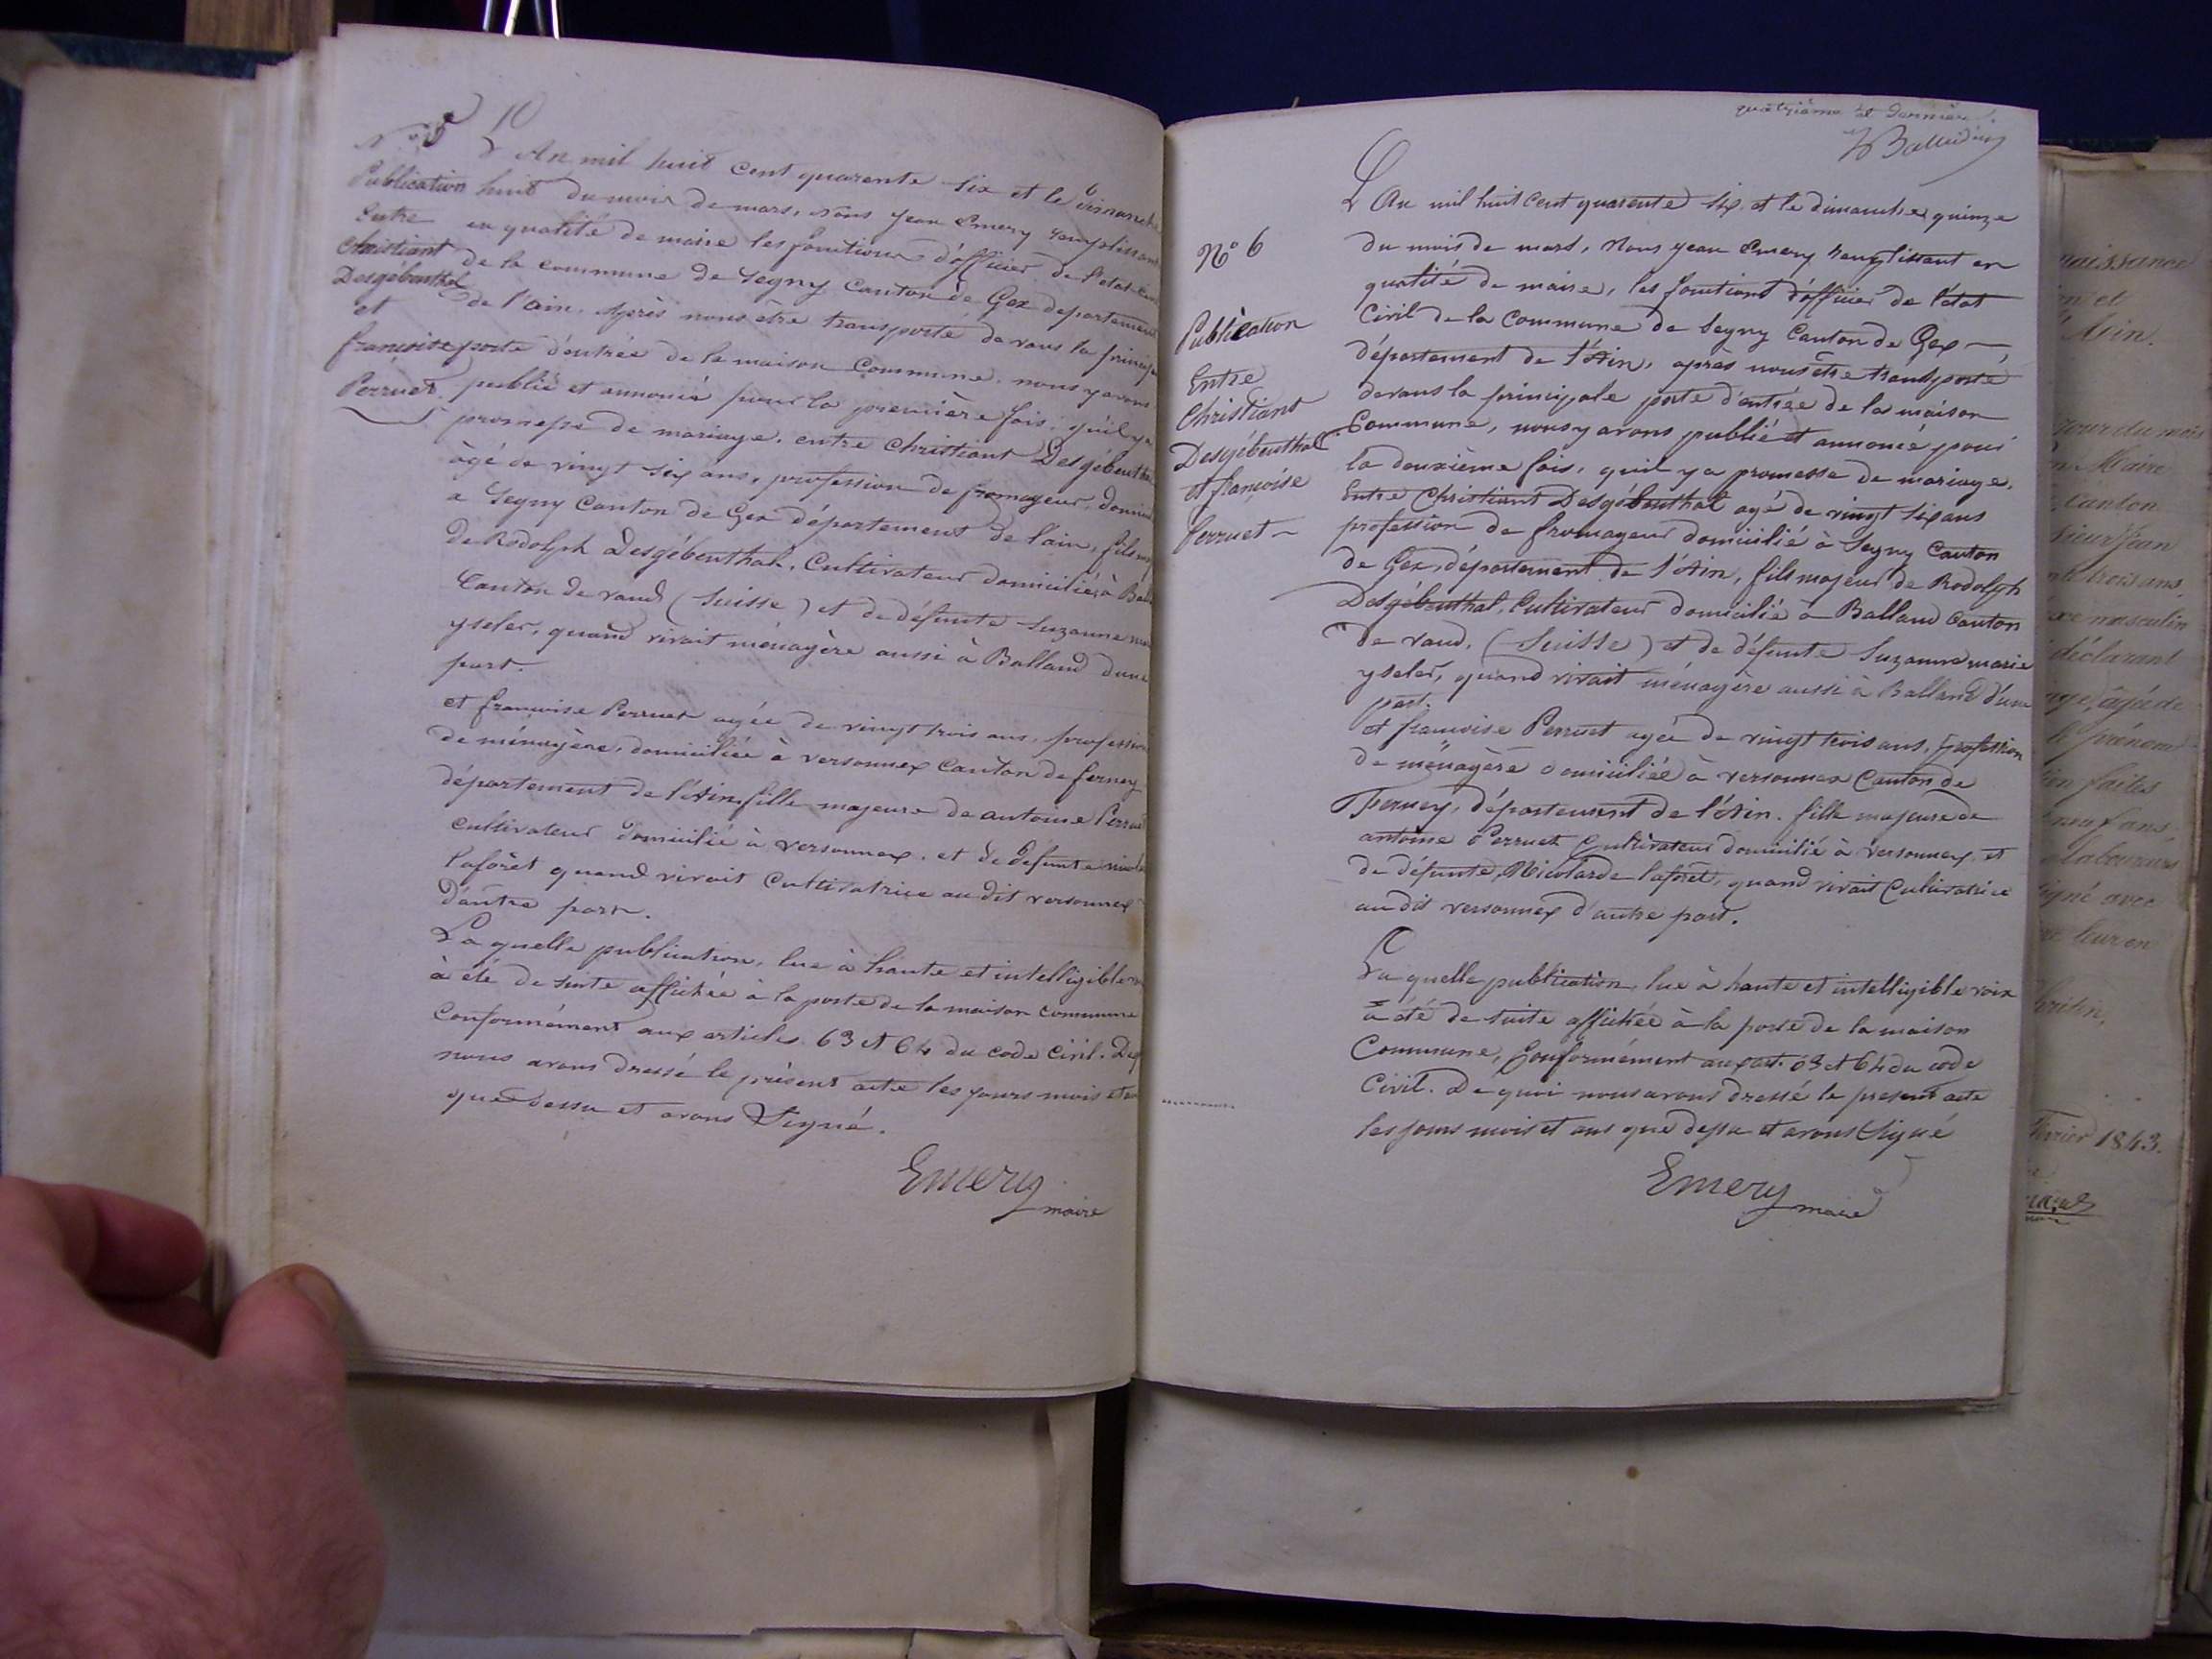 N° 5
Publication
Entre
Christiant
Desgébenthal
et
françoise
Perruet.
L'An mil huit cent quarente six et le dimanche
huit du mois de mars, Nous Jean Emery remplissant
en qualité de maire les fonctions d'officier de l'état civil
de la commune de Segny Canton de Gex département
de l'ain. Après nous être transporté devans la principale
porte d'entrée de la maison Commune, nous y avons
publié et annoncé pour la première fois, qu'il y a
promesse de mariage, entre Christiant Desgébenthal
âgé de vingt six ans, profession de fromageur, domicilié
a Segny Canton de Gex département de l'ain, fils majeur
de Rodolph Desgébenthal, Cultivateur domicilié à Balland
Canton de vaud (Suisse) et de défunte Suzanne marie
yseler, quand vivait ménagère aussi à Balland d'une
part.
et francoise Perruet agée de vingt trois ans, profession
de ménagère, domiciliée à versonnex Canton de ferney
département de l'Ain, fille majeure de antoine Perruet
cultivateur domicilié à versonnex, et de défunte
laforêt quand vivait Cultivatrice au dit versonnex
d'autre part.
La quelle publication, lue à haute et intelligible voix
à été de suite affichée à la porte de la maison commune
Conformément aux articles 63 et 64 du code Civil. De
nous avons dressé le présent acte les jours mois et an
que dessu et avons Signé.
Emery
maire
quatrième et dernière.
N° 6
Publication
Entre
Christiant
Desgébenthal
et francoise
Perruet
L'An mil huit Cent quarente six et le dimanche quinze
du mois de mars, Nous Jean Emery remplissant en
qualité de maire, les fonctions d'officier de l'état
Civil de la Commune de Segny Canton de Gex
département de l'Ain, après nous être transporté
devans la principale porte d'entrée de la maison
Commune, nous y avons publié et annoncé pour
la deuxième fois, qu'il y a promesse de mariage.
Entre Christiant Desgébenthal agé de vingt six ans
profession de fromageur domicilié à Segny Canton
de Gex département de l'Ain, fils majeur de Rodolph
Desgébenthal, Cultivateur domicilié à Balland Canton
de vaud, (Suisse) et de défunte Suzanne marie
yseler, quand vivait ménagère aussi à Balland d'une
part.
et francoise Perruet agée de vingt trois ans, profession
de ménagère domiciliée à versonnex Canton de
Ferney, département de l'Ain. fille majeure de
antoine Perruet Cultivateur domicilié à versonnex, et
de défunte, Nicolarde laforêt, quand vivait Cultivatrice
au dit versonnex d'autre part.
La quelle publication, lue à haute et intelligible voix
a été de suite affichée à la porte de la maison
Commune, Conformément aux art. 63 et 64 du code
Civil. De quoi nous avons dressé le présent acte
les jours mois et ans que dessu et avons Signé
Emery
maire
naissance
et
l'Ain.
jour du mois
Maire
Canton
Sieur Jean
trois ans,
masculin
déclarant
âgé de
prénoms
faites
ans,
laboureurs
signé avec
leur en
février 1843.